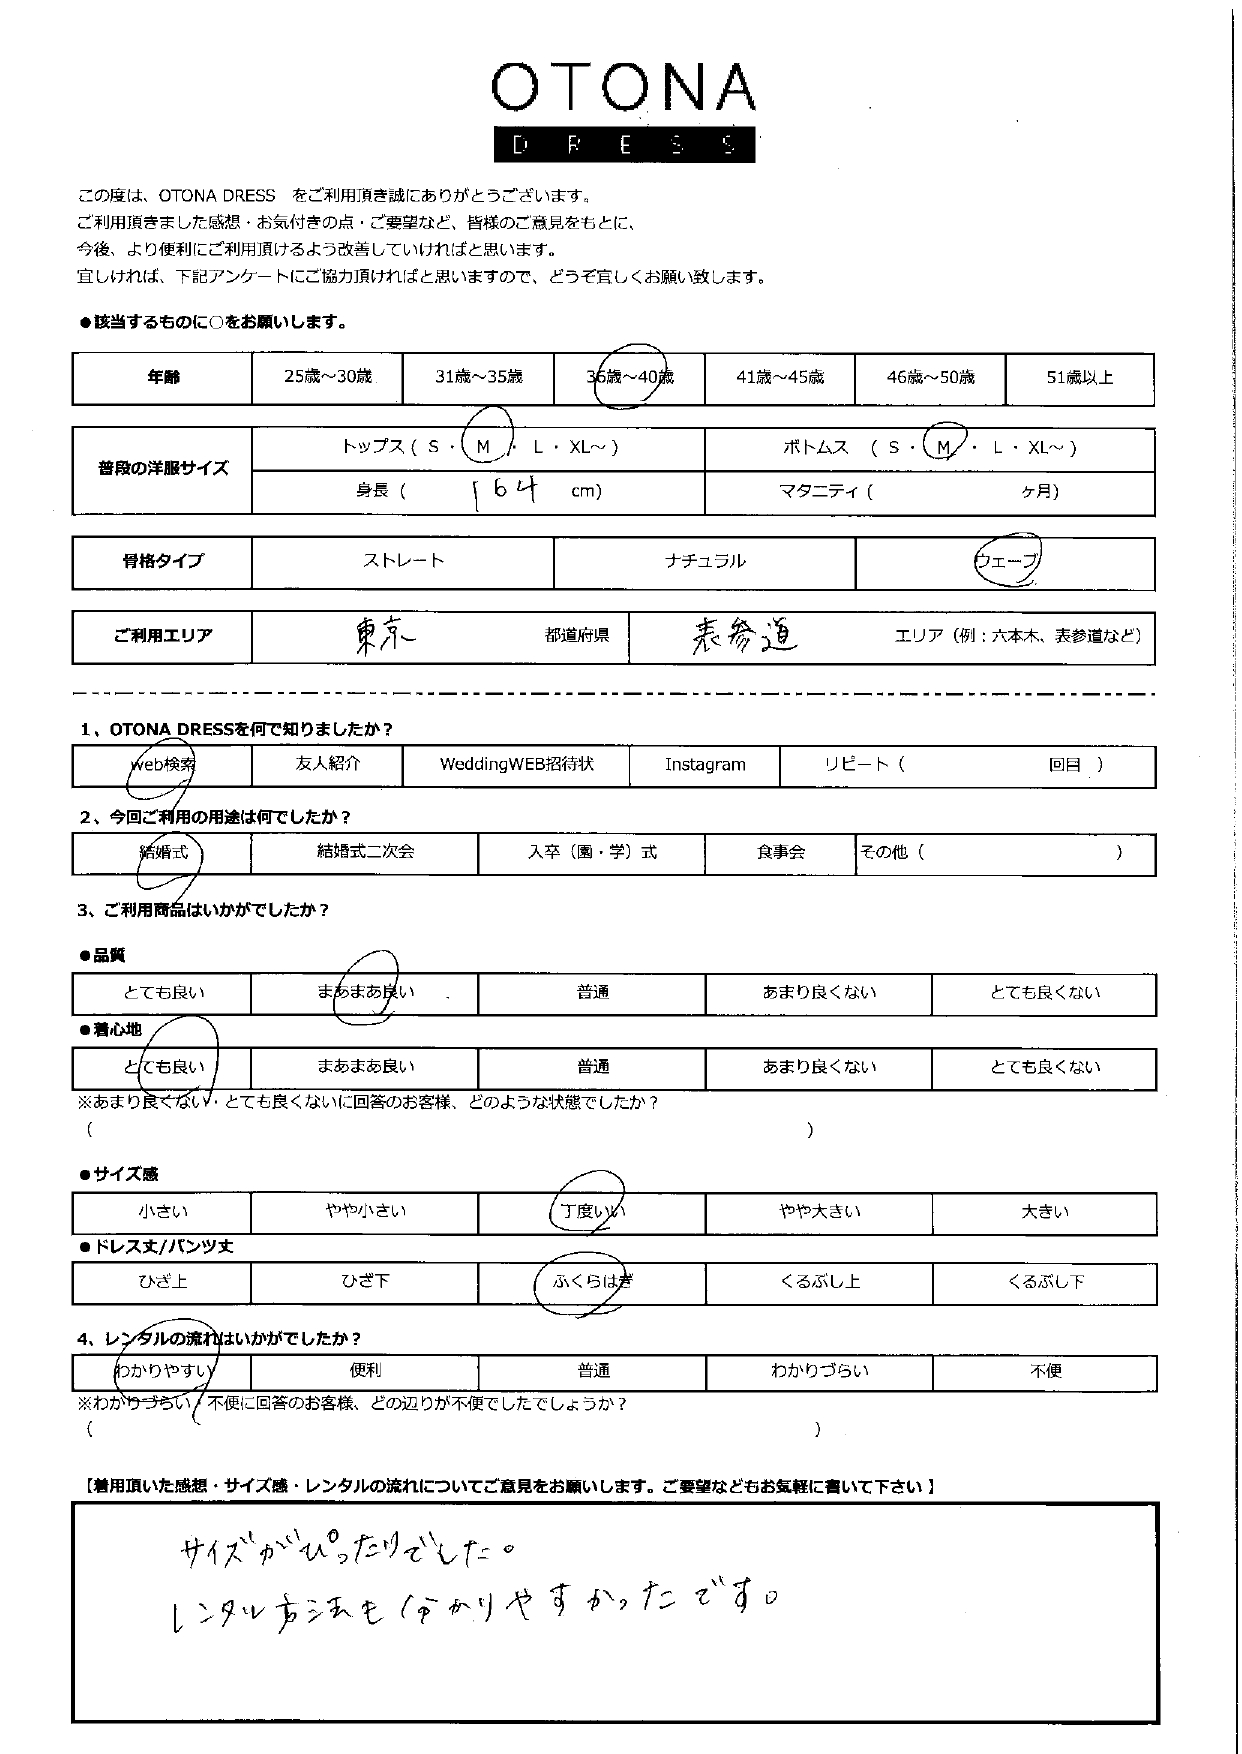 OTONA
DRESS
この度は、OTONA DRESS　をご利用頂き誠にありがとうございます。
ご利用頂きました感想・お気付きの点・ご要望など、皆様のご意見をもとに、
今後、より便利にご利用頂けるよう改善していければと思います。
宜しければ、下記アンケートにご協力頂ければと思いますので、どうぞ宜しくお願い致します。
●該当するものに○をお願いします。
年齢 25歳～30歳 31歳～35歳 36歳～40歳 41歳～45歳 46歳～50歳 51歳以上
普段の洋服サイズ トップス ( S ・ M ・ L ・ XL～ ) ボトムス ( S ・ M ・ L ・ XL～ )
身長 ( 164 cm) マタニティ ( ヶ月)
骨格タイプ ストレート ナチュラル ウェーブ
ご利用エリア 東京 都道府県 表参道 エリア（例：六本木、表参道など）
1、OTONA DRESSを何で知りましたか？
web検索 友人紹介 WeddingWEB招待状 Instagram リピート（ 回目 ）
2、今回ご利用の用途は何でしたか？
結婚式 結婚式二次会 入卒（園・学）式 食事会 その他（ ）
3、ご利用商品はいかがでしたか？
●品質
とても良い まあまあ良い 普通 あまり良くない とても良くない
●着心地
とても良い まあまあ良い 普通 あまり良くない とても良くない
※あまり良くない・とても良くないに回答のお客様、どのような状態でしたか？
( )
●サイズ感
小さい やや小さい 丁度いい やや大きい 大きい
●ドレス丈/パンツ丈
ひざ上 ひざ下 ふくらはぎ くるぶし上 くるぶし下
4、レンタルの流れはいかがでしたか？
わかりやすい 便利 普通 わかりづらい 不便
※わかりづらい・不便に回答のお客様、どの辺りが不便でしたでしょうか？
( )
【着用頂いた感想・サイズ感・レンタルの流れについてご意見をお願いします。ご要望などもお気軽に書いて下さい】
サイズがぴったりでした。
レンタル方法も分かりやすかったです。